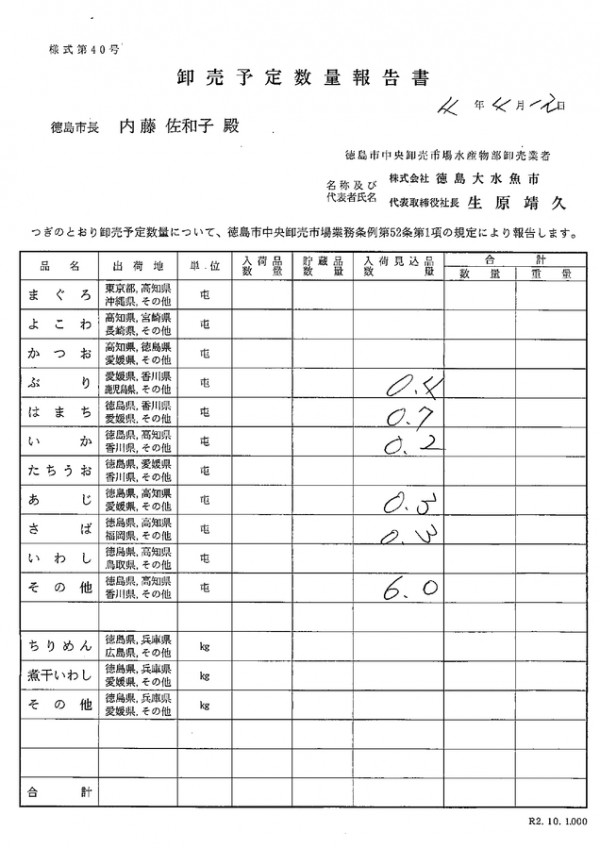 様式第40号
卸売予定数量報告書
4年4月12日
徳島市長 内藤 佐和子 殿
徳島市中央卸売市場水産物部卸売業者
名称及び 株式会社 徳島大水魚市
代表者氏名 代表取締役社長 生原靖久
つぎのとおり卸売予定数量について、徳島市中央卸売市場業務条例第52条第1項の規定により報告します。
品名 出荷地 単位 入荷品数量 貯蔵品数量 入荷見込品数量 合計
数量 重量
まぐろ 東京都, 高知県 屯
沖縄県, その他
よこわ 高知県, 宮崎県 屯
長崎県, その他
かつお 高知県, 徳島県 屯
愛媛県, その他
ぶり 愛媛県, 香川県 屯 0.4
鹿児島県, その他
はまち 徳島県, 香川県 屯 0.7
愛媛県, その他
いか 徳島県, 高知県 屯 0.2
香川県, その他
たちうお 徳島県, 愛媛県 屯
香川県, その他
あじ 徳島県, 高知県 屯
愛媛県, その他
さば 徳島県, 高知県 屯 0.3
福岡県, その他
いわし 徳島県, 高知県 屯
鳥取県, その他
その他 徳島県, 高知県 屯 6.0
香川県, その他
ちりめん 徳島県, 兵庫県 kg
広島県, その他
煮干いわし 徳島県, 兵庫県 kg
愛媛県, その他
その他 徳島県, 兵庫県 kg
愛媛県, その他
合計
R2. 10. 1.000